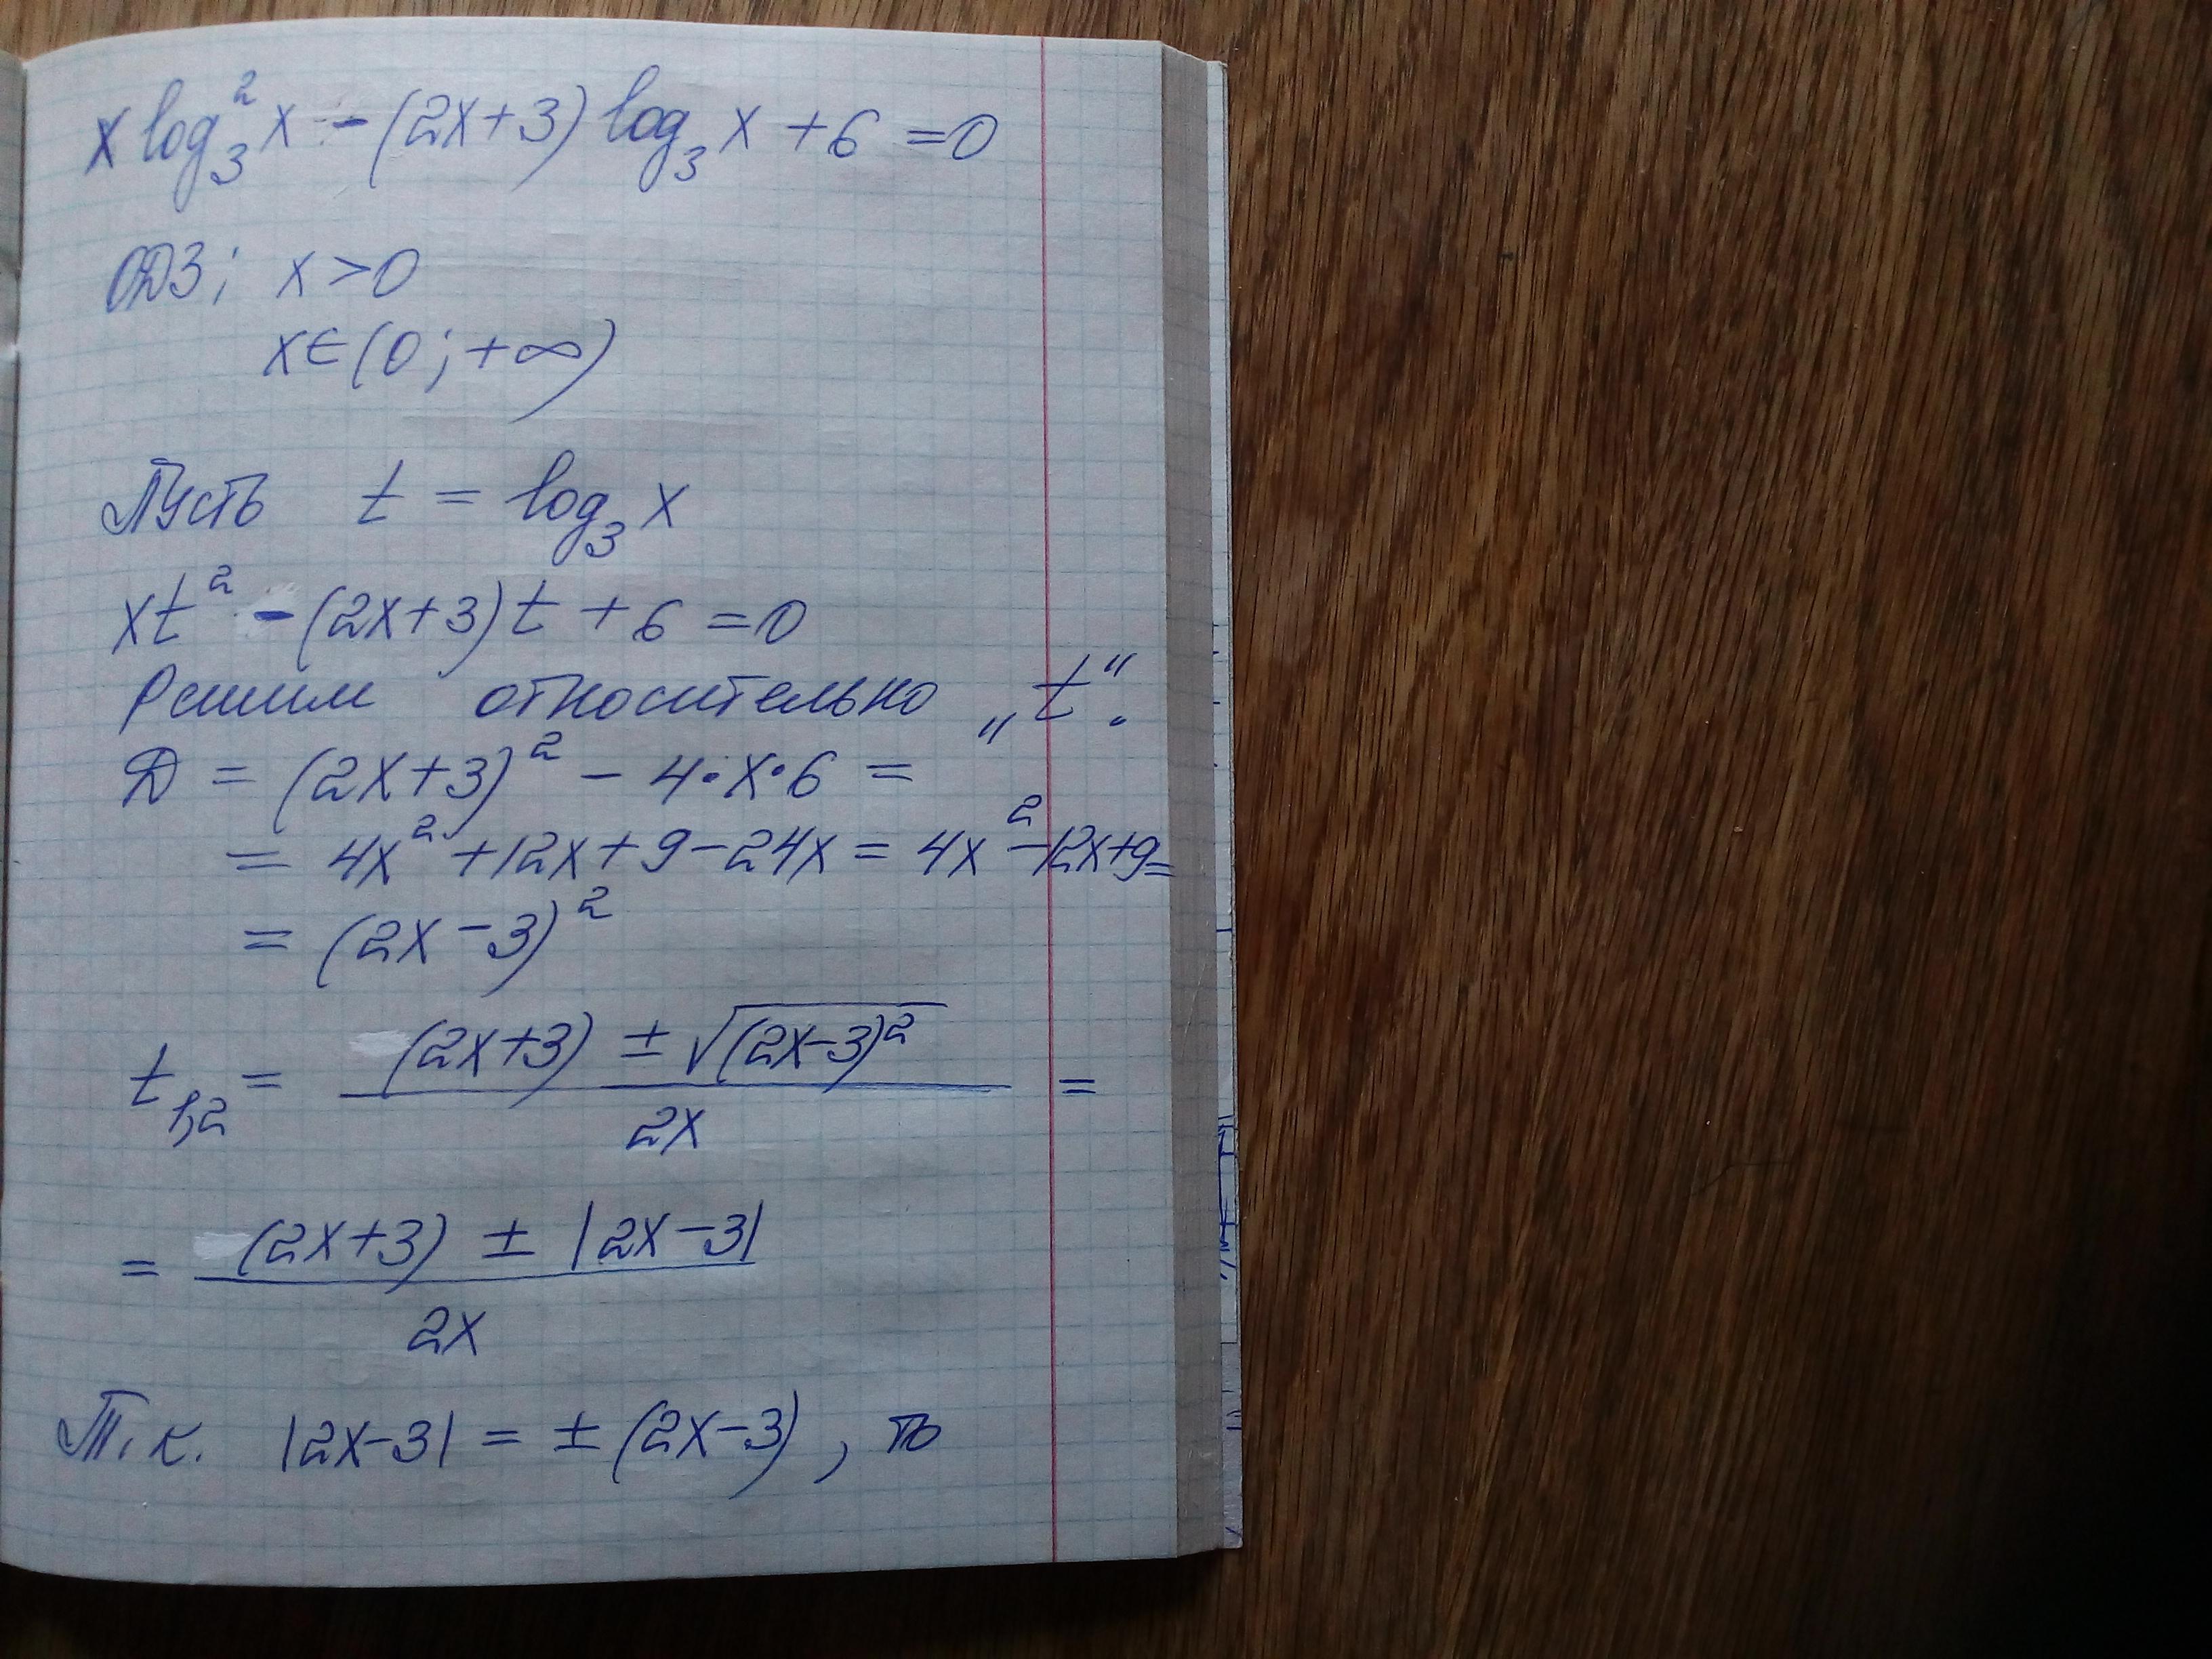 x log₃² x - (2x+3) log₃ x + 6 = 0
ОДЗ: x > 0
x ∈ (0; +∞)
Пусть t = log₃ x
xt² - (2x+3)t + 6 = 0
Решим относительно „t“.
D = (2x+3)² - 4·x·6 =
= 4x² + 12x + 9 - 24x = 4x² - 12x + 9 =
= (2x - 3)²
t₁,₂ = ((2x+3) ± √(2x-3)²) / 2x =
= ((2x+3) ± |2x-3|) / 2x
Т.к. |2x-3| = ± (2x-3), то